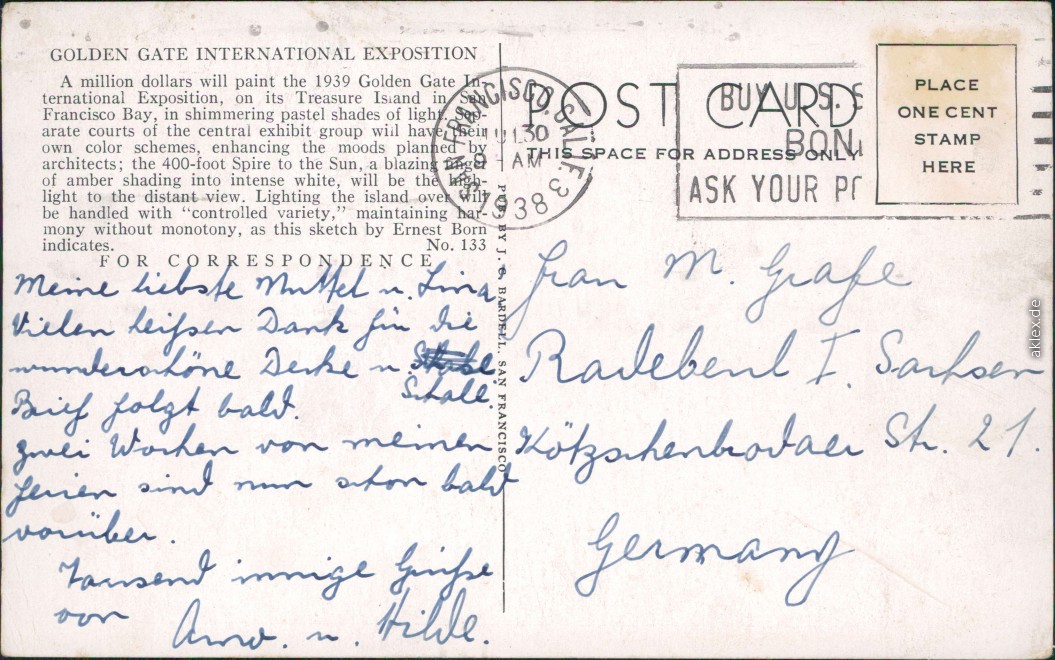 GOLDEN GATE INTERNATIONAL EXPOSITION
A million dollars will paint the 1939 Golden Gate In-
ternational Exposition, on its Treasure Island in San
Francisco Bay, in shimmering pastel shades of light. Sep-
arate courts of the central exhibit group will have their
own color schemes, enhancing the moods planned by
architects; the 400-foot Spire to the Sun, a blazing finger
of amber shading into intense white, will be the high-
light to the distant view. Lighting the island over will
be handled with “controlled variety,” maintaining har-
mony without monotony, as this sketch by Ernest Born
indicates. No. 133
FOR CORRESPONDENCE
Meine liebste Muttel u. Lina
Vielen heißen Dank für die
wunderschöne Decke u.
Schall.
Brief folgt bald.
Zwei Wochen von meinen
Ferien sind nun schon bald
vorüber.
Tausend innige Grüße
von
Arno. u. Hilde.
PUB. BY J. C. BARDELL, SAN FRANCISCO
SAN FRANCISCO, CALIF. 3
JUL 30
9 - AM
1938
POST CARD
THIS SPACE FOR ADDRESS ONLY
BUY U. S. S
BON
ASK YOUR P
PLACE
ONE CENT
STAMP
HERE
Frau M. Grafe
Radebeul I. Sachsen
Kötzschenbrodaer Str. 21.
Germany
aklex.de